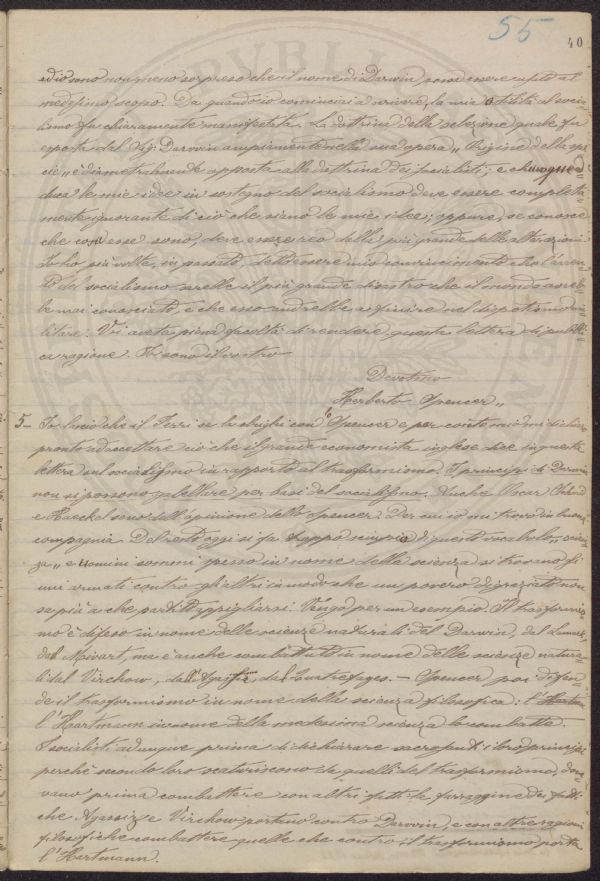 55
40
ed io sono non meno sorpreso che il nome di Darwin possa essere usato al
medesimo scopo. Da quando io cominciai a scrivere, la mia ostilità al socia-
lismo fu chiaramente manifestata. La dottrina della selezione quale fu
esposta dal Sig. Darwin ampiamente nella sua opera "Origine della spe-
cie" è diametralmente opposta alla dottrina dei socialisti; e chiunque ad-
duca le mie idee in sostegno del socialismo deve essere completa-
mente ignorante di ciò che siano le mie idee; oppure, se conosce
che cosa esse sono, deve essere reo della più grande delle alterazioni
Io ho più volte, in passato, detto essere mio convincimento che l'avven-
to del socialismo sarebbe il più grande disastro che il mondo avreb-
be mai conosciuto, e che esso andrebbe a finire nel dispotismo mi-
litare. Vi avete piena facoltà di rendere questa lettera di pubbli-
ca ragione. Io sono il vostro
Devotmo
Herberto Spencer"
5. Io lascio che il Ferri se la sbrighi con lo Spencer e per conto mio mi dichiaro
pronto ad accettare ciò che il grande economista inglese dice in questa
lettera sul socialismo in rapporto al trasformismo. I principi di Darwin
non si possono gabellare per basi del socialismo. Anche Oscar Schmid
e Haeckel sono dell'opinione dello Spencer. Per cui io mi trovo in buona
compagnia. Del resto oggi si fa troppo sciupio di questo vocabolo "scien-
za" e uomini sommi spesso in nome della scienza si trovano gli
uni armati contro gli altri in modo che un povero disgraziato non
sa più a che partito appigliarsi. Vengo per un esempio. Il trasformis-
mo è difeso in nome delle scienze naturali del Darwin, dal Lamark
dal Mivart, ma è anche combattuto in nome delle scienze natura-
li dal Virchow, dall'Agassiz, dal Quatrefages. — Spencer poi difen-
de il trasformismo in nome della scienza filosofica: l'
l'Hartmann in nome della medesima scienza lo combatte. —
I socialisti adunque prima di dichiarare sacrosanti i loro principi
perchè secondo loro scaturiscono da quelli del trasformismo, dove-
vano prima combattere con altri fatti la farraggine dei fatti
che Agassiz e Virchow portano contro Darwin, e con altre ragioni
filosofiche combattere quelle che contro il trasformismo porta
l'Hartmann.